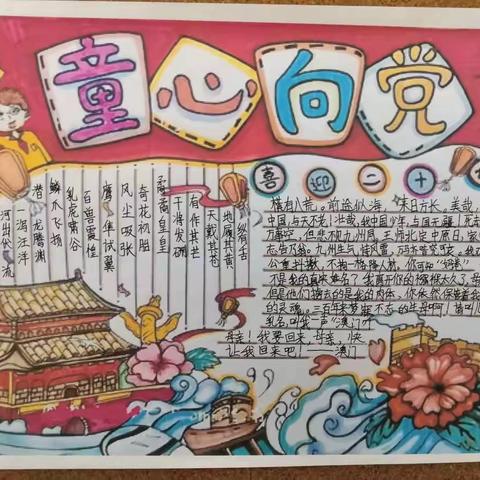 童心向党
纵有古
地履其黄
天戴其苍
有作其芒
干将发硎
矞矞皇皇
奇花初胎
风尘吸张
鹰隼试翼
百兽震惶
乳虎啸谷
鳞爪飞扬
潜龙腾渊
一泻汪洋
河出伏流
喜迎二十
横有八荒。前途似海,来日方长。美哉,
中国,与天不老!壮哉,我中国少年,与国无疆!死去
万事空,但悲不见九州同。王师北定中原日,家
志告乃翁。九州生气恃风雷,万马齐喑究可哀。我
公重抖擞,不拘一格降人材。你可知"妈港"
不是我的真姓名?我离开你的襁褓太久了,母
但是他们掳去的是我的肉体,你依然保管着我
的灵魂。三百年来梦寐不忘的生母啊!请叫儿
乳名,叫我一声"澳门"
母亲!我要回来,母亲。快
让我回来吧!——澳门